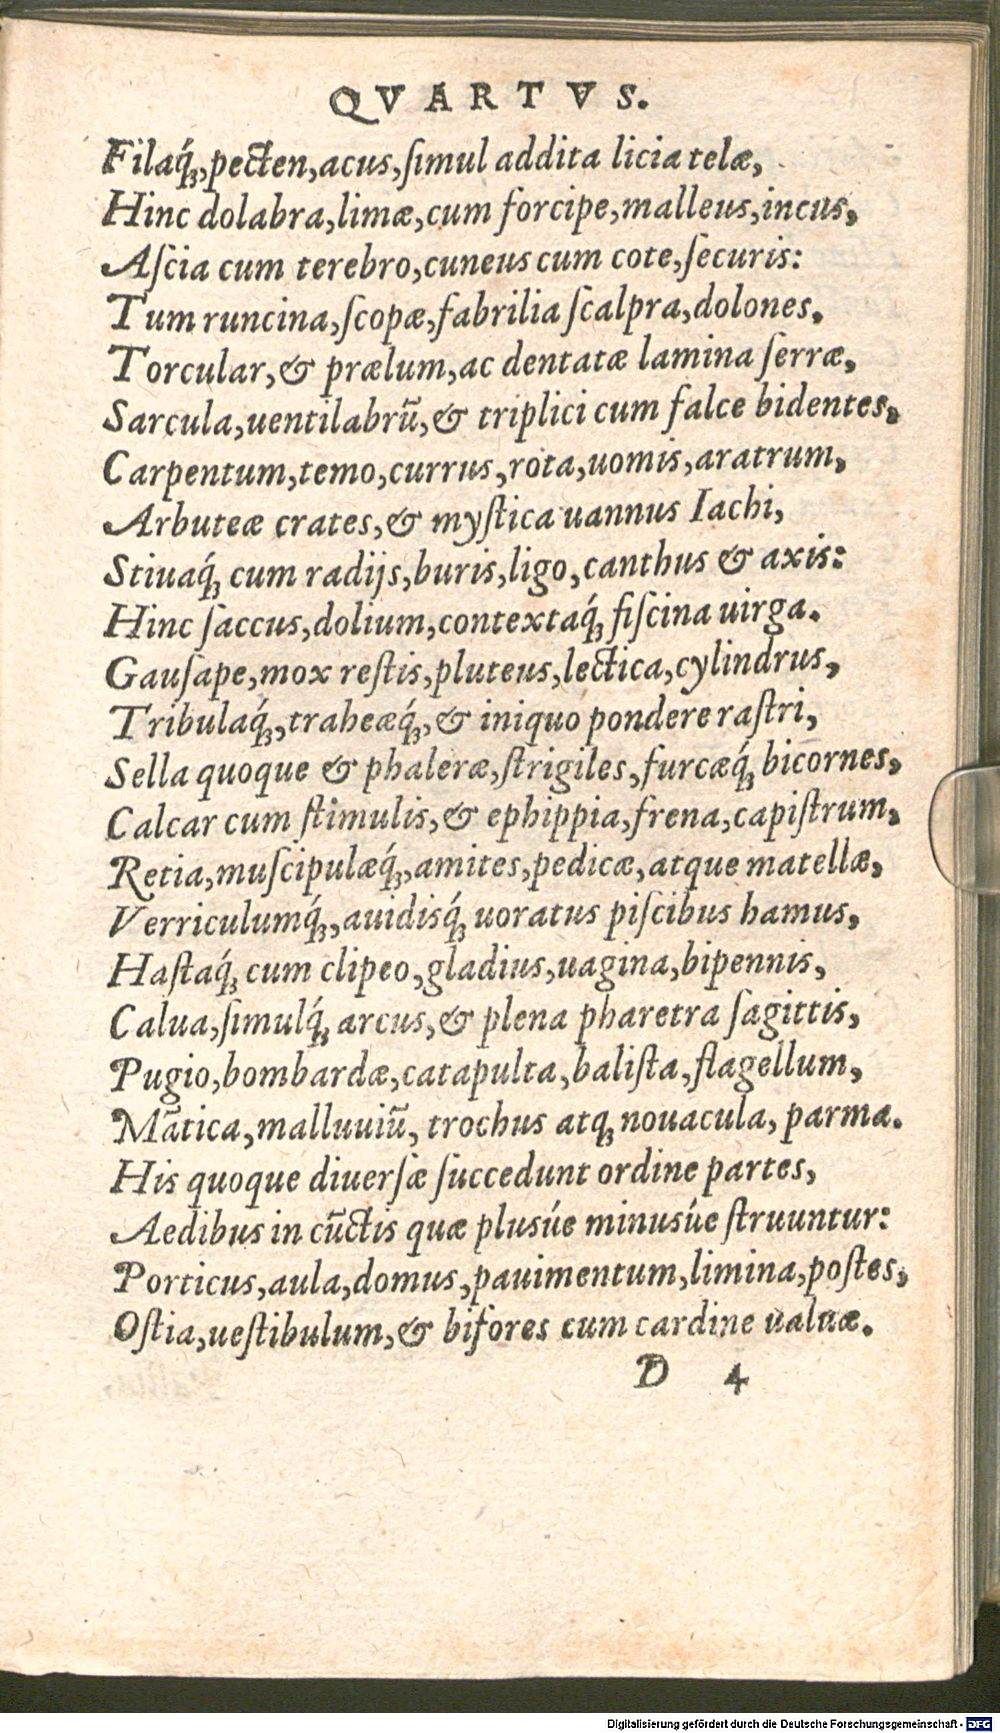 QVARTVS.
Filaq́ꝫ, pecten, acus, ſimul addita licia telæ,
Hinc dolabra, limæ, cum forcipe, malleus, incus,
Aſcia cum terebro, cuneus cum cote, ſecuris:
Tum runcina, ſcopæ, fabrilia ſcalpra, dolones.
Torcular, & prælum, ac dentatæ lamina ſerræ,
Sarcula, uentilabrū, & triplici cum falce bidentes,
Carpentum, temo, currus, rota, uomis, aratrum,
Arbuteæ crates, & myſtica uannus Iachi,
Stiuaq́ꝫ cum radijs, buris, ligo, canthus & axis:
Hinc ſaccus, dolium, contextaq́ꝫ fiſcina uirga.
Gauſape, mox reſtis, pluteus, lectica, cylindrus,
Tribulaq́ꝫ, traheæq́ꝫ, & iniquo pondere raſtri,
Sella quoque & phaleræ, ſtrigiles, furcæq́ꝫ bicornes,
Calcar cum ſtimulis, & ephippia, frena, capiſtrum,
Retia, muſcipulæq́ꝫ, amites, pedicæ, atque matellæ,
Verriculumq́ꝫ, auidisq́ꝫ uoratus piſcibus hamus,
Haſtaq́ꝫ cum clipeo, gladius, uagina, bipennis,
Calua, ſimulq́ꝫ arcus, & plena pharetra ſagittis,
Pugio, bombardæ, catapulta, baliſta, flagellum,
Mātica, malluuiū, trochus atqꝫ nouacula, parma.
His quoque diuerſæ ſuccedunt ordine partes,
Aedibus in cūctis quæ plusúe minusúe ſtruuntur:
Porticus, aula, domus, pauimentum, limina, poſtes,
Oſtia, ueſtibulum, & bifores cum cardine ualuæ.
D 4
Digitalisierung gefördert durch die Deutsche Forschungsgemeinschaft - DFG